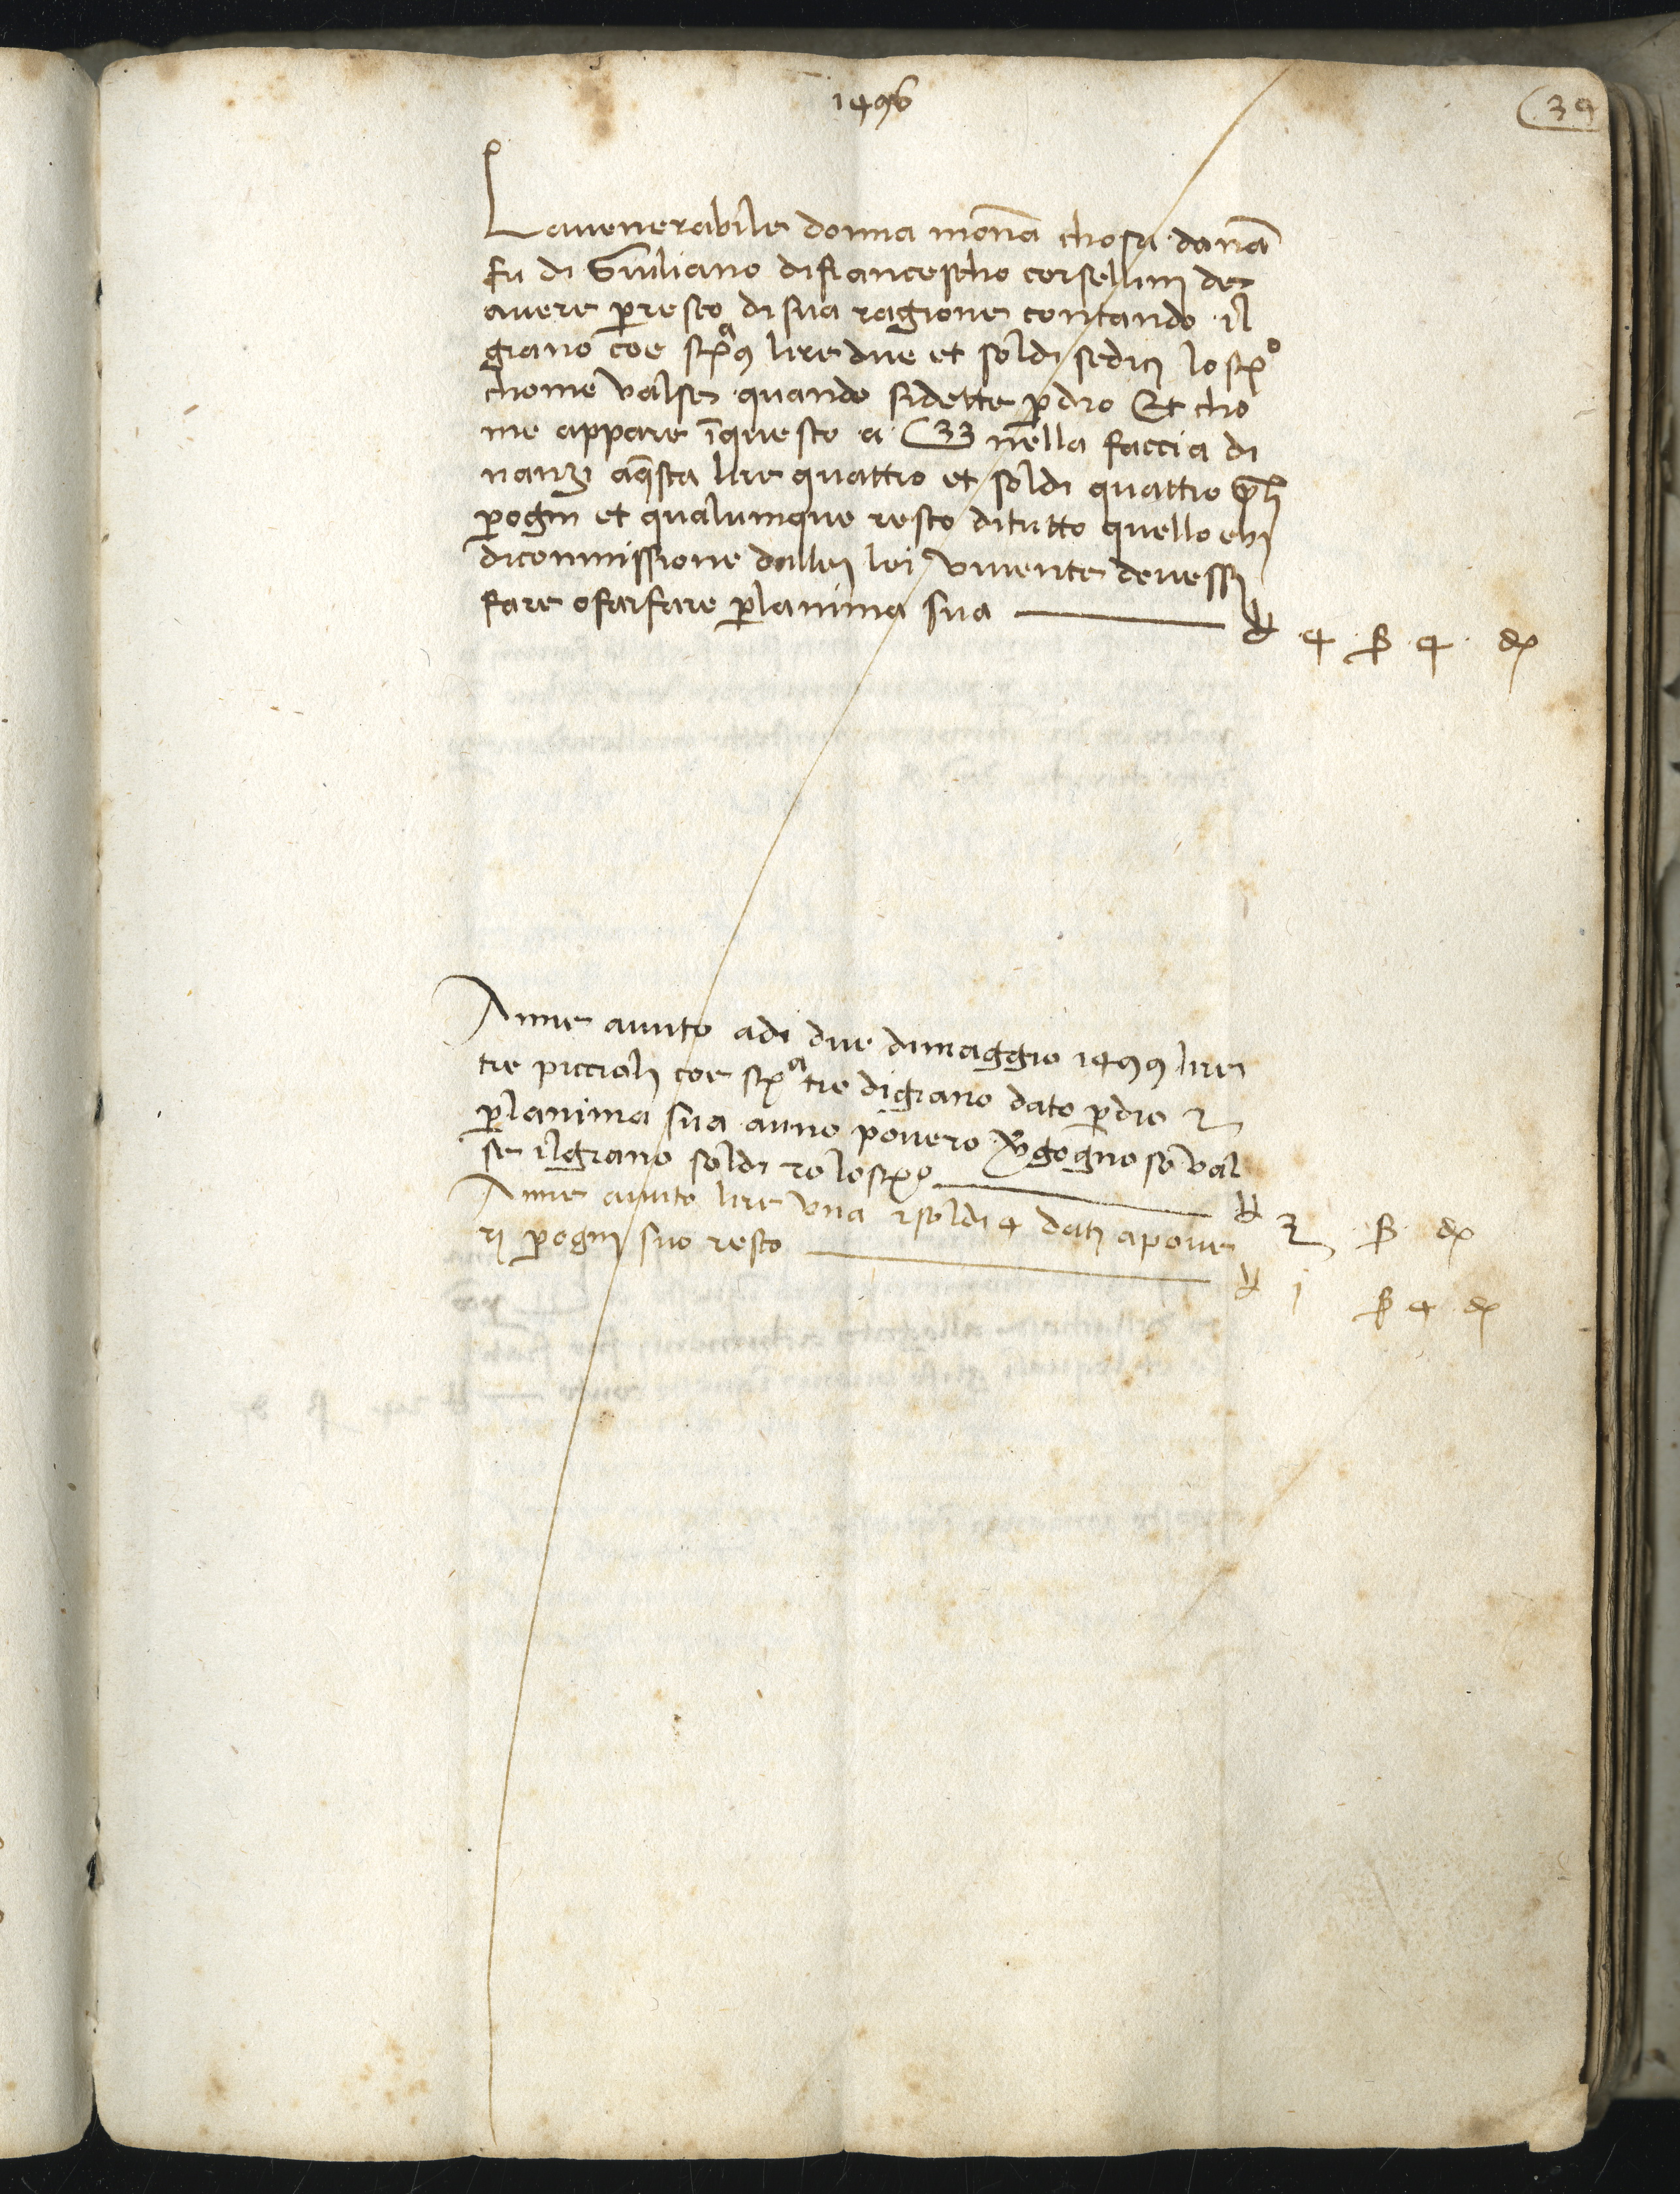 1496
39
La venerabile donna mona chosa dona
fu di Giuliano di francescho corsellini de
avere per resto di sua ragione contando il
grano coe sta 9 lire due et soldi sedici lo sto
chome valse quando si dette per dio Et cho
me appare in questo a C 33 nella faccia di
nanzi a questa lire quattro et soldi quattro
per ogni et qualunque resto di tutto quello ebi
di commissione dallei lei vivente devessi
fare o far fare per lanima sua — lb 4 ß 4 d
Anne avuto adi due di maggio 1499 lire
tre piccioli coe sta tre di grano dato per dio
per lanima sua a uno povero vergognoso val
se il grano soldi 20 lo sto — lb 3 ß d
Anne avuto lire una e soldi 4 dati a pove
ri per ogni suo resto — lb i ß 4 d